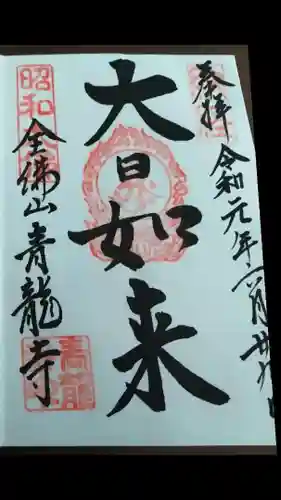 奉拝
令和元年六月廿九日
大日如来
全佛山青龍寺
昭和
青龍